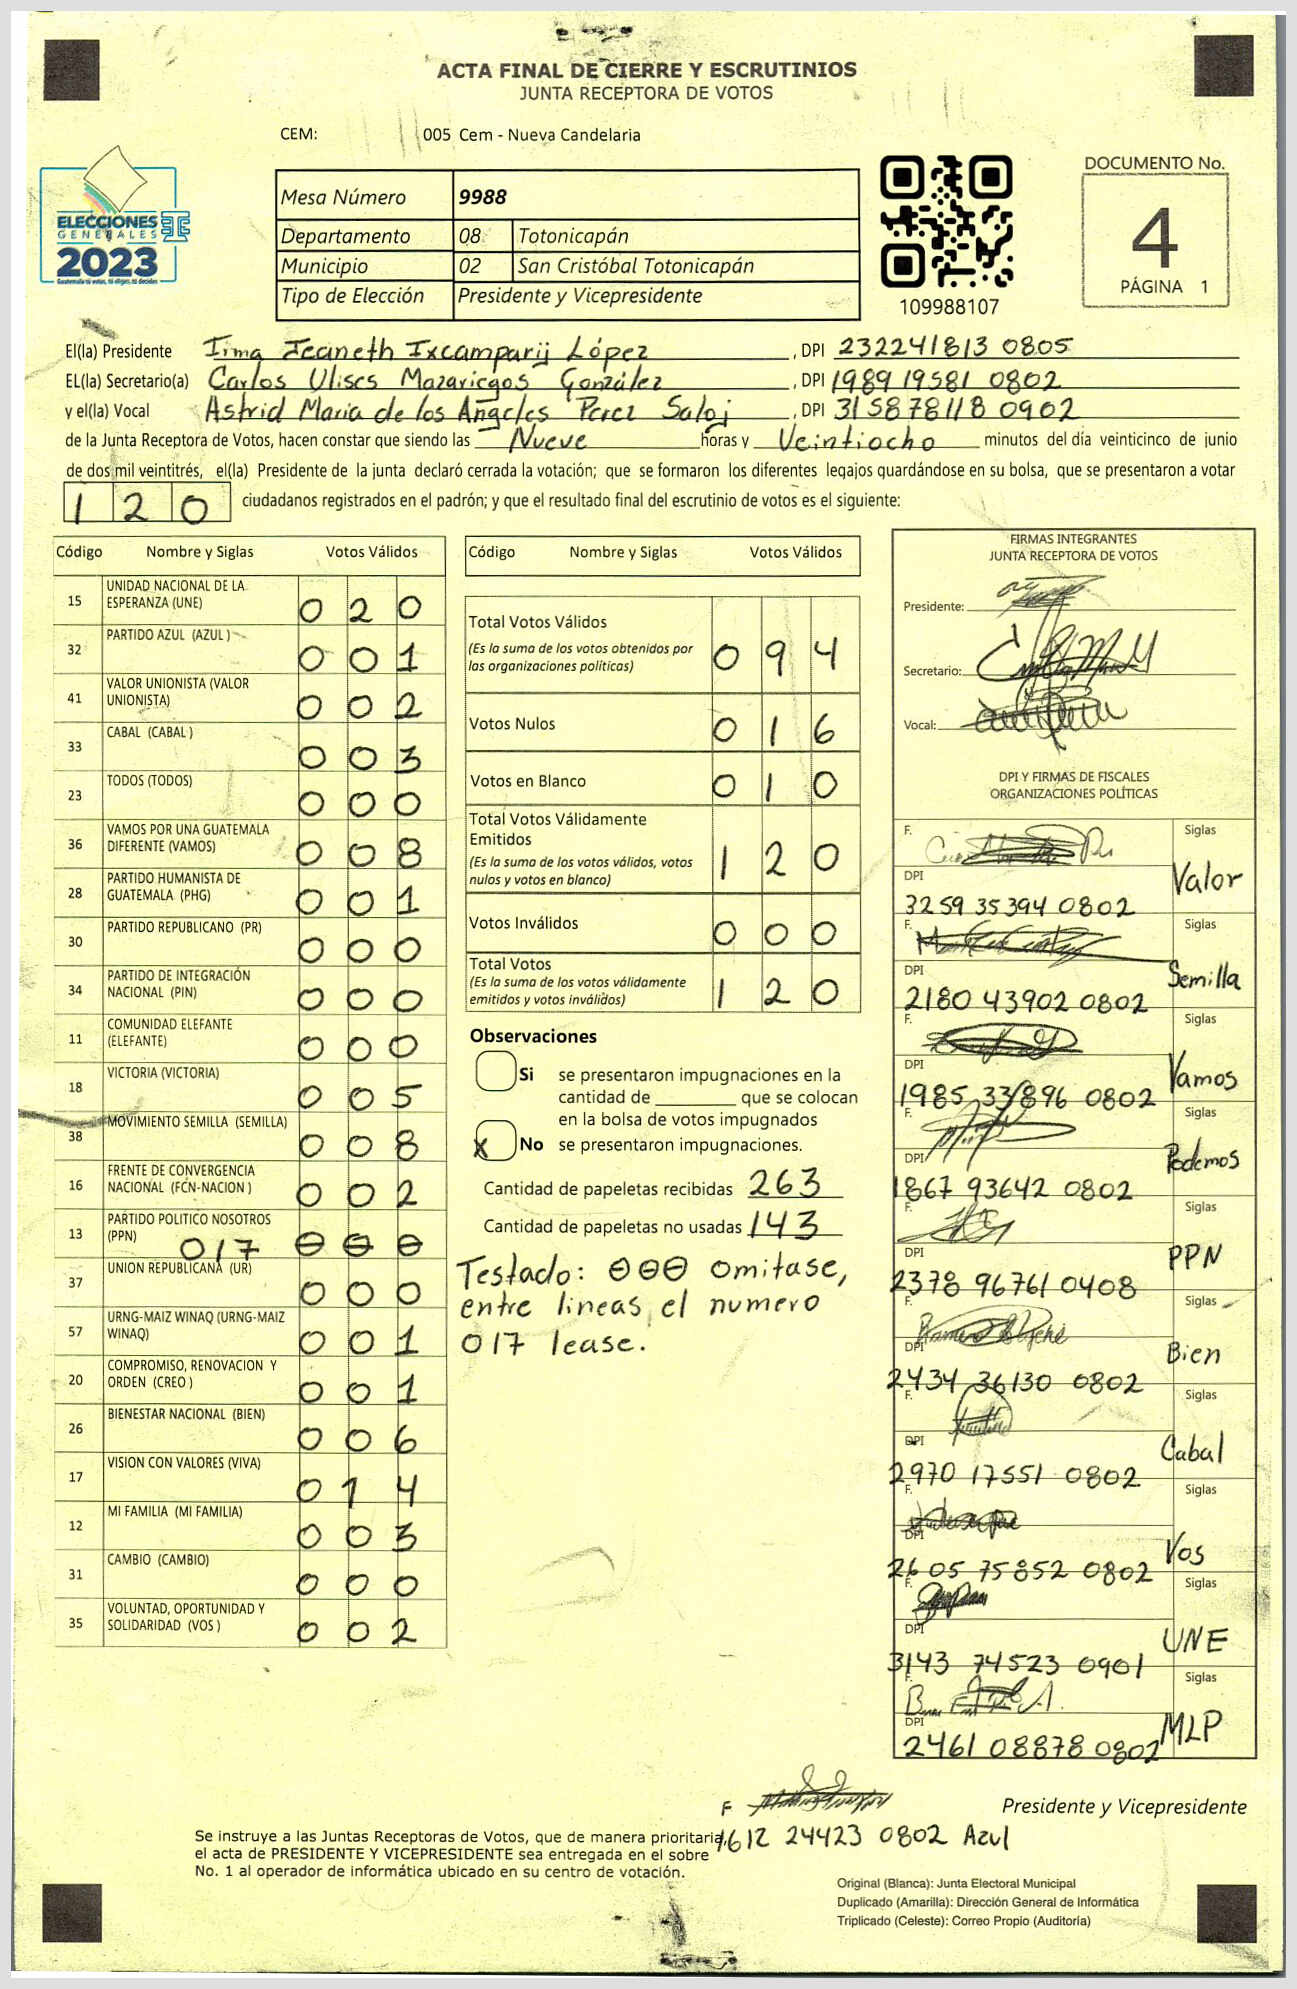 ACTA FINAL DE CIERRE Y ESCRUTINIOS
JUNTA RECEPTORA DE VOTOS
CEM: 005 Cem - Nueva Candelaria
ELECCIONES
GENERALES
2023
Guatemala tú votas, tú eliges, tú decides
Mesa Número 9988
Departamento 08 Totonicapán
Municipio 02 San Cristóbal Totonicapán
Tipo de Elección Presidente y Vicepresidente
109988107
DOCUMENTO No.
4
PÁGINA 1
El(la) Presidente Irma Jeaneth Ixcamparij López, DPI 232241813 0805
EL(la) Secretario(a) Carlos Ulises Mazariegos González, DPI 1989 19581 0802
y el(la) Vocal Astrid Maria de los Angeles Perez Saloj, DPI 315878118 0902
de la Junta Receptora de Votos, hacen constar que siendo las Nueve horas y Veintiocho minutos del día veinticinco de junio
de dos mil veintitrés, el(la) Presidente de la junta declaró cerrada la votación; que se formaron los diferentes legajos quardándose en su bolsa, que se presentaron a votar
1 2 0 ciudadanos registrados en el padrón; y que el resultado final del escrutinio de votos es el siguiente:
Código Nombre y Siglas Votos Válidos
15 UNIDAD NACIONAL DE LA
ESPERANZA (UNE) 0 2 0
32 PARTIDO AZUL (AZUL ) 0 0 1
41 VALOR UNIONISTA (VALOR
UNIONISTA) 0 0 2
33 CABAL (CABAL ) 0 0 3
23 TODOS (TODOS) 0 0 0
36 VAMOS POR UNA GUATEMALA
DIFERENTE (VAMOS) 0 0 8
28 PARTIDO HUMANISTA DE
GUATEMALA (PHG) 0 0 1
30 PARTIDO REPUBLICANO (PR) 0 0 0
34 PARTIDO DE INTEGRACIÓN
NACIONAL (PIN) 0 0 0
11 COMUNIDAD ELEFANTE
(ELEFANTE) 0 0 0
18 VICTORIA (VICTORIA) 0 0 5
38 MOVIMIENTO SEMILLA (SEMILLA) 0 0 8
16 FRENTE DE CONVERGENCIA
NACIONAL (FCN-NACION ) 0 0 2
13 PARTIDO POLITICO NOSOTROS
(PPN) 017 0 0 0
37 UNION REPUBLICANA (UR) 0 0 0
57 URNG-MAIZ WINAQ (URNG-MAIZ
WINAQ) 0 0 1
20 COMPROMISO, RENOVACION Y
ORDEN (CREO ) 0 0 1
26 BIENESTAR NACIONAL (BIEN) 0 0 6
17 VISION CON VALORES (VIVA) 0 1 4
12 MI FAMILIA (MI FAMILIA) 0 0 3
31 CAMBIO (CAMBIO) 0 0 0
35 VOLUNTAD, OPORTUNIDAD Y
SOLIDARIDAD (VOS ) 0 0 2
Código Nombre y Siglas Votos Válidos
Total Votos Válidos
(Es la suma de los votos obtenidos por
las organizaciones políticas) 0 9 4
Votos Nulos 0 1 6
Votos en Blanco 0 1 0
Total Votos Válidamente
Emitidos
(Es la suma de los votos válidos, votos
nulos y votos en blanco) 1 2 0
Votos Inválidos 0 0 0
Total Votos
(Es la suma de los votos válidamente
emitidos y votos inválidos) 1 2 0
Observaciones
Si se presentaron impugnaciones en la
cantidad de ________ que se colocan
en la bolsa de votos impugnados
X No se presentaron impugnaciones.
Cantidad de papeletas recibidas 263
Cantidad de papeletas no usadas 143
Testado: 000 omitase,
entre lineas el numero
017 lease.
FIRMAS INTEGRANTES
JUNTA RECEPTORA DE VOTOS
Presidente:
Secretario:
Vocal:
DPI Y FIRMAS DE FISCALES
ORGANIZACIONES POLÍTICAS
F. Siglas
DPI Valor
3259 35394 0802
F. Siglas
DPI Semilla
2180 43902 0802
F. Siglas
DPI Vamos
1985 33896 0802
F. Siglas
DPI Podemos
1867 93642 0802
F. Siglas
DPI PPN
2378 96761 0408
F. Siglas
DPI Bien
2434 36130 0802
F. Siglas
DPI Cabal
2970 17551 0802
F. Siglas
DPI Vos
2605 75852 0802
F. Siglas
DPI UNE
3143 74523 0901
F. Siglas
DPI MLP
2461 08878 0802
F
1612 24423 0802 Azul
Presidente y Vicepresidente
Se instruye a las Juntas Receptoras de Votos, que de manera prioritaria,
el acta de PRESIDENTE Y VICEPRESIDENTE sea entregada en el sobre
No. 1 al operador de informática ubicado en su centro de votación.
Original (Blanca): Junta Electoral Municipal
Duplicado (Amarilla): Dirección General de Informática
Triplicado (Celeste): Correo Propio (Auditoría)